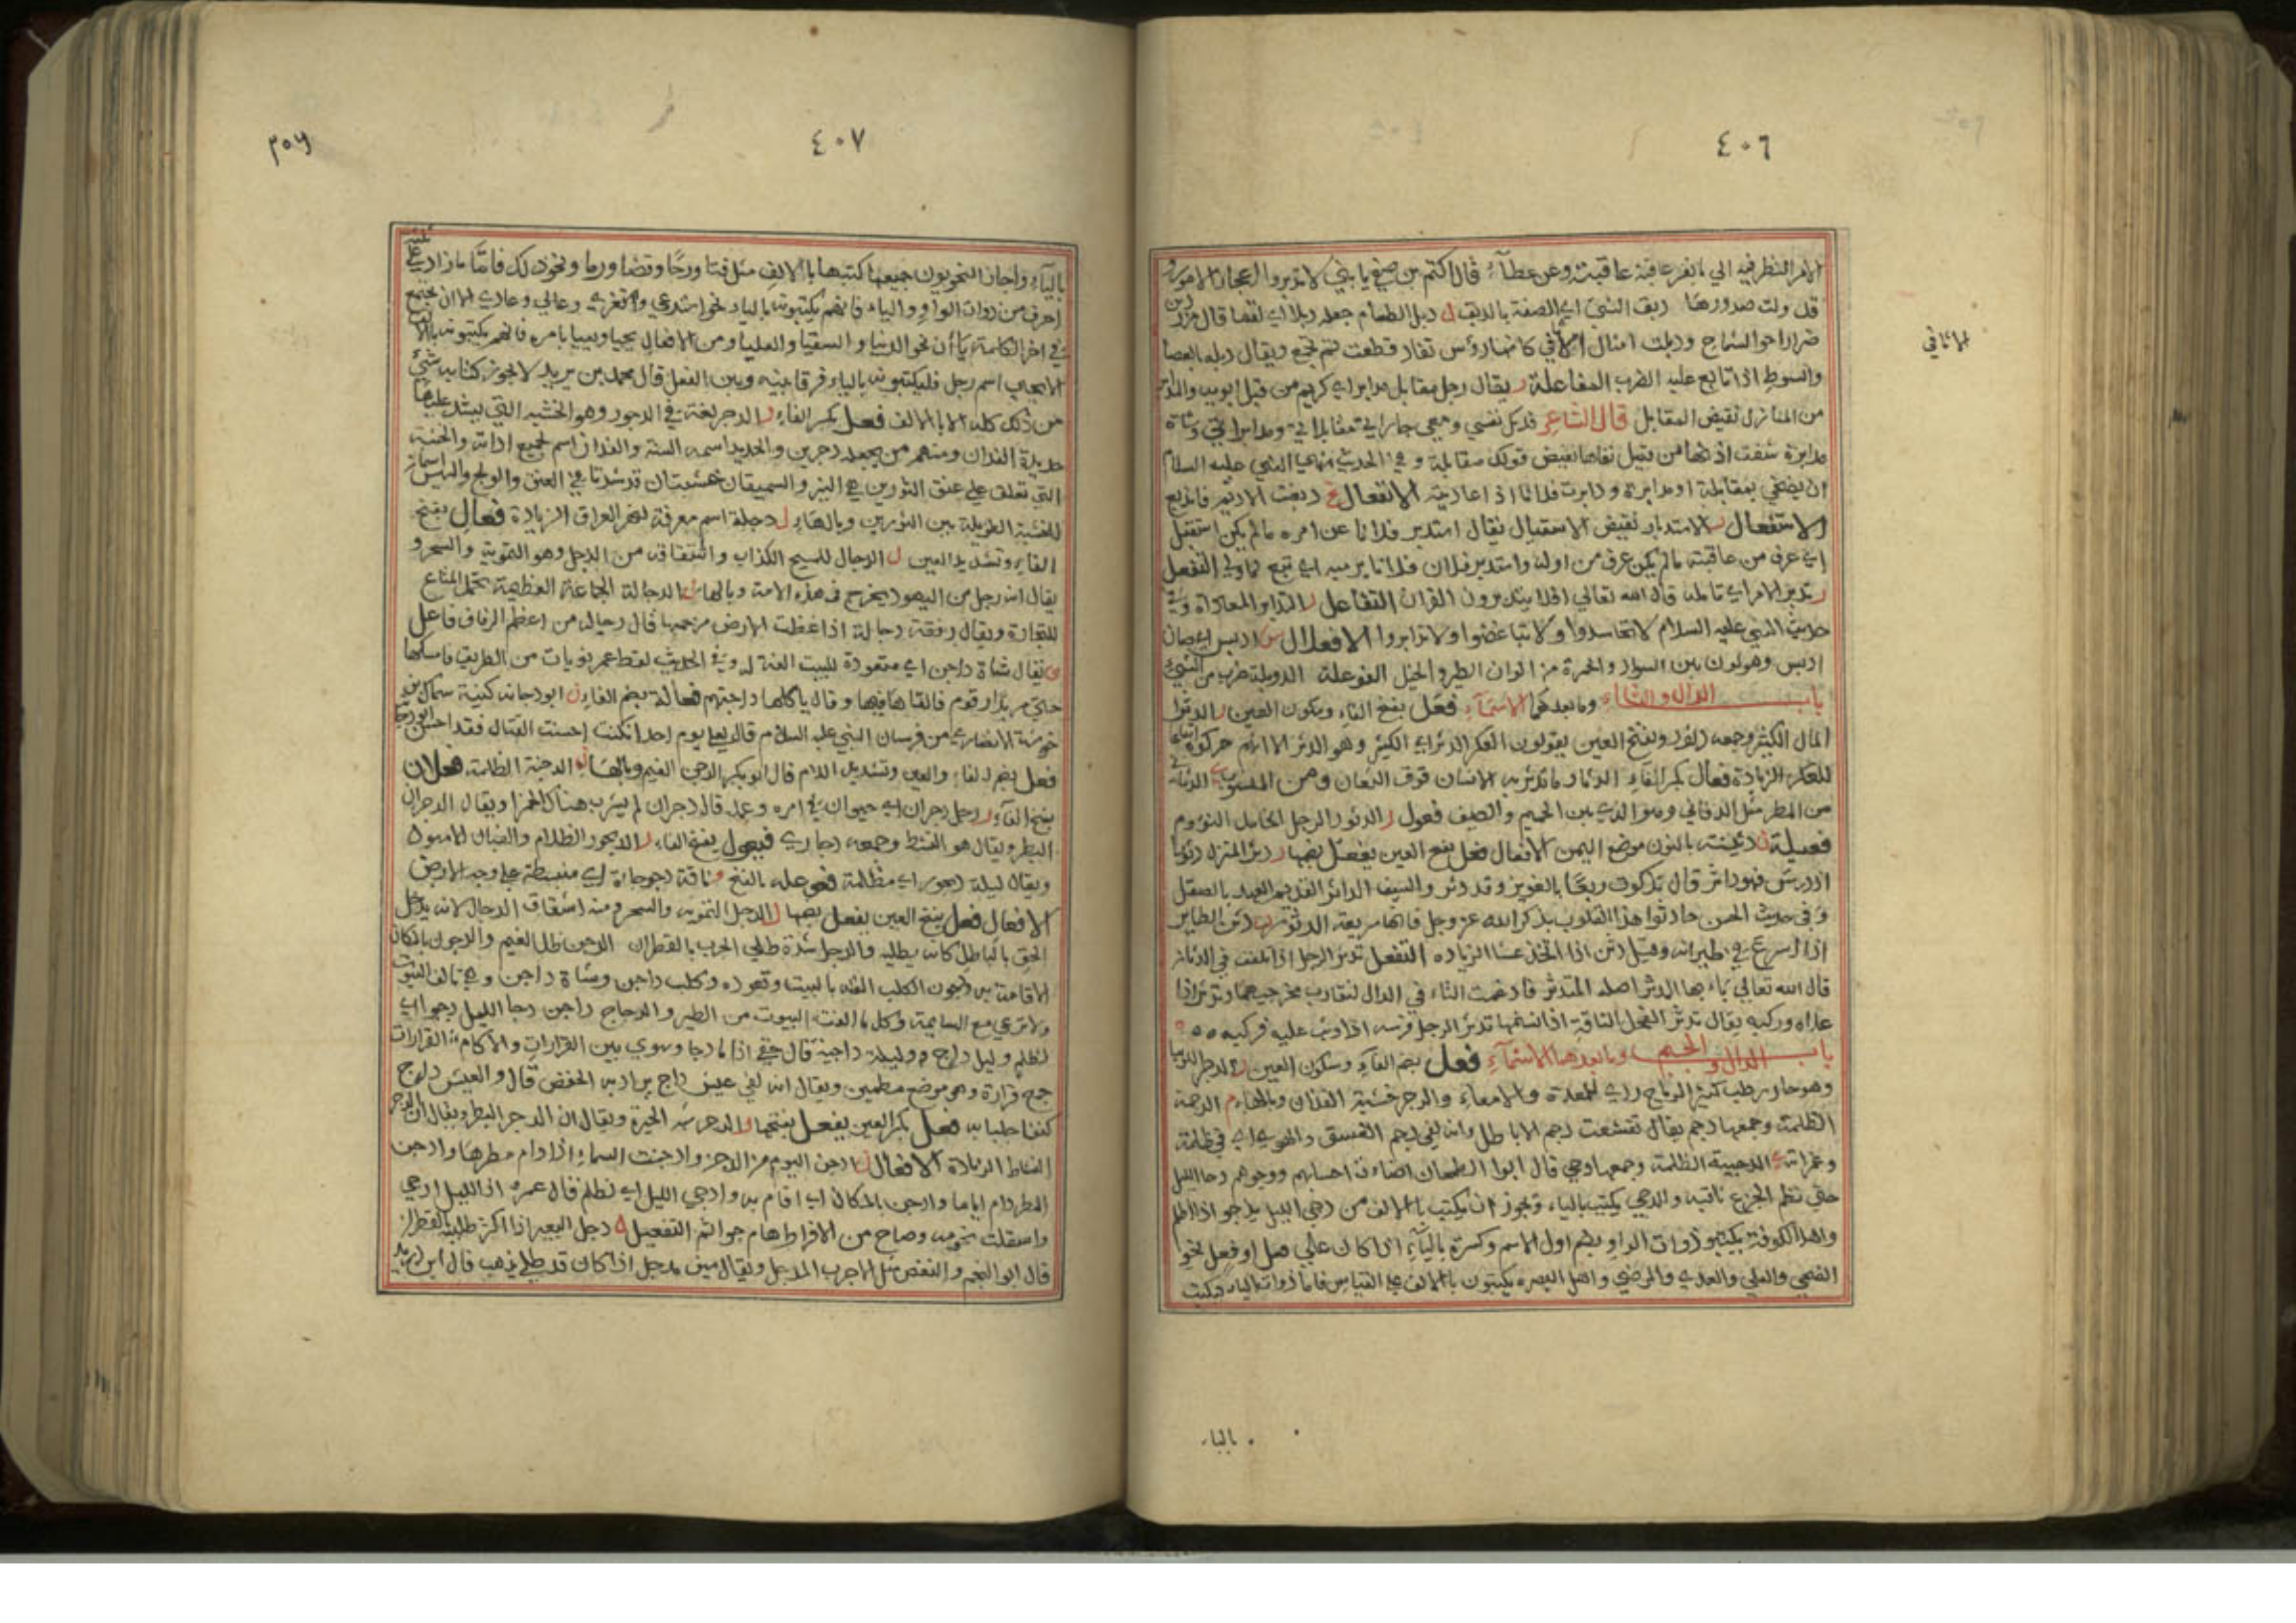 ٤٠٦
الامر النظر فيه الي ما تغر عاقبة عاقبته وعن عطآء قال اكثم بن صيفي يا بني لا تدبروا اعجاز الامور و
قد ولت صدورها دبق الشيئ اي الصقه بالدبق ل دبل الطعام جعله دبلا اي لقما قال مزرد بن
ضرار اخو الشماخ ودبلت امثال الاثافي كانها رؤس نقاد قطعت يوم تجمع ويقال دبله بالعصا
الاثافي
والسوط اذا تابع عليه الضرب المفاعلة ر يقال رجل مقابل مدابر اي كريم من قبل ابويه والمدابر
من المنازل نقيض المقابل قال الشاعر فدتك نفسي ومعي جاراتي مقابلاتي ومدابراتي وشاة
مدابرة شقت اذنها من قبل نقاها نقيض قولك مقابلة وفي الحديث نهي النبي عليه السلام
ان يضحي بمقابلة او مدابرة ودابرت فلانا اذا عاديته الانفعال غ دبغت الاديم فاندبغ
الاستفعال ر الاستدبار نقيض الاستقبال يقال استدبر فلانا عن امره ما لم يكن استقبل
اي عرف من عاقبته ما لم يكن عرف من اوله واستدبر فلان فلانا برميه اي تبع لما ولي التفعل
ر تدبر الامر اي تامله قال الله تعالي افلا يتدبرون القرآن التفاعل ر التدابر المعاداة وفي
حديث النبي عليه السلام لا تحاسدوا ولا تباغضوا ولا تدابروا الافعلال س ادبس اي صار
ادبس وهو لون بين السواد والحمرة من الوان الطير والخيل الفوعلة الدوبلة ضرب من الشيئ
باب الدال والثاء وما بعدهما الاسمآء فعل بفتح الفاء وسكون العين ر الدثر
المال الكثير وجمعه دثور وبفتح العين يقولون العكر الدثر اي الكثير وهو الدثر الا انهم حركوه
للعكر الزيادة فعال بكسر الفاء ر الدثار ما تدثر به الانسان فوق الشعار ومن المنسوب الدثاي
من المطر مثل الدفاي وهو الذي بين الحميم والصيف فعول ر الدثور الرجل الخامل النؤوم
فعيلة ن دثينة بالنون موضع اليمن الافعال فعل بفتح العين يفعل بضمها ر دثر المنزل دثورا
اذا درس فهو داثر قال تذكرت ربعا بالغوير وقد دثر والسيف الداثر القديم العهد بالصقل
وفي حديث الحسن حادثوا هذا القلوب بذكر الله عز وجل فانها سريعة الدثور ن دثن الطاير
اذا اسرع في طيرانه وقيل دثن اذا اتخذ عشا الزياده التفعل تدثر الرجل اذا تلفف في الدثار
قال الله تعالي يا ايها المدثر اصله المتدثر فادغمت التاء في الدال لتقارب مخرجيهما وتدثر اذا
علاه وركبه يقال تدثر الفحل الناقة اذا تسنمها تدثر الرجل فرسه اذا وثب عليه فركبه
باب الدال والجيم وما بعدهما الاسمآء فعل بضم الفاء وسكون العين ر الدجر اللوبيا
وهو حار رطب كثير الرياح ردي للمعدة والامعاء والدجر خشبة الفدان وبالهاء م الدجمة
الظلمة وجمعها دجم يقال تقشعت دجم الاباطل وانه لفي دجم الفسق والهوي اي في ظلمة
وغمراته ي الدجية الظلمة وجمعها دجي قال ابو الطمحان اضاءت احسابهم ووجوههم دجا الليل
حتي نظم الجزع ثاقبه والدجي يكتب بالياء ويجوز ان يكتب بالالف من دجي الليل يدجو اذا اظلم
واهل الكوفة يكتبون ذوات الواو بضم اول الاسم وكسرة بالياء اذا كان علي فعل او فعل نحو
الضحي والعلي والعدي والرضي واهل البصره يكتبون بالالف علي القياس فاما ذوات الياء فيكتب
بالياء
٤٠٧
بالياء واجاز النحويون جميعا كتبها بالالف مثل فتا ورحا وقضا ورما ونحو ذلك فاما ما زاد علي ثلثة
احرف من ذوات الواو والياء فانهم يكتبونه بالياء نحو استدعي واستغزي وعالي وعادي الا ان يجتمع
في اخر الكلمة ياآن نحو الدنيا والسقيا والعليا ومن الافعال يحيا ويعيا بامره فانهم يكتبونه بالالف
الا يحيي اسم رجل فليكتبونه بالياء فرقا بينه وبين الفعل قال محمد بن يزيد لا يجوز كتابة شيئ
من ذلك كله الا بالالف فعل بكسر الفاء ر الدجر لغة في الدجور وهو الخشبة التي يشد عليها
حديدة الفدان ومنهم من يجعله دجرين والحديد اسمه السنة والفدان اسم لجميع اداته والخشبة
التي تعلق علي عنق الثورين هي النير والسميقان خشبتان قد شدتا في العنق والويج والهيس اسماء
للخشبة الطويلة بين الثورين وبالهاء ل دجلة اسم معرفة لنهر العراق الزيادة فعال بفتح
الفاء وتشديد العين ل الدجال المسيح الكذاب واشتقاقه من الدجل وهو التمويه والسحر و
يقال انه رجل من اليهود يخرج في هذه الامة وبالهاء الدجالة الجماعة العظيمة تحمل المتاع
للتجارة ويقال رفقة دجالة اذا غطت الارض بزحمها قال دجالة من اعظم الرفاق فاعل
ن يقال شاة داجن اي متعودة للبيت الفة له وفي الحديث لقط عمر نويات من الطريق فامسكها
حتي مر بدار قوم فالقاها فيها وقال ياكلها داجنتهم فعالة بضم الفاء ن ابو دجانة كنية سماك بن
خرشة الانصاري من فرسان النبي عليه السلام قال لعلي يوم احد ان كنت احسنت القتال فقد احسن ابو دجانة
فعل بضم الفاء والعين وتشديد اللام قال ابو بكر الدجن الغيم وبالهاء ن الدجنة الظلمة فعلان
بفتح الفآء ر رجل دجران اي حيران في امره وعمله قال دجران لم يشرب هناك الخمرا ويقال الدجران
البطر ويقال هو النشط وجمعه دجاري فيعول بفتح الفاء ر الديجور الظلام والضبال لامهول
ويقال ليلة ديجور اي مظلمة فعوعله بالفتح و ناقة دجوجاة اي منبسطة علي وجه الارض
الافعال فعل بفتح العين يفعل بضمها ل الدجل التمويه والسحر ومنه اشتقاق الدجال لانه يدخل
الحق بالباطل كانه يطليه والدجل شدة طلي الجرب بالقطران الدجن ظل الغيم والدجون بالمكان
الاقامة به ودجون الكلب الفه بالبيت وتعوده وكلب داجن وشاة داجن وهي تالف البيوت
ولا ترعي مع السايمة وكل ما الفت البيوت من الطير والدجاج داجن دجا الليل دجوا اي
اظلم وليل داج وليلة داجية قال حتي اذا ما دجا وسوي بين القرارات والاكام القرارات
جمع قرارة وهو موضع مطمين ويقال انه لفي عيش داج يراد به الخفض قال والعيش داج
كنفا جلبابه فعل بكسر العين يفعل بفتحها ر الدجر شبه الحيرة ويقال ان الدجر البطر ويقال ان الدجر
النشاط الزيادة الافعال ن ادجن اليوم من الدجن وادجنت السماء اذا دام مطرها وادجن
المطر دام اياما وادجن بالمكان اي اقام به و ادجي الليل اي اظلم قال عمره اذا الليل ادجي
واستقلت نجومه وصاح من الافراط هام جواثم التفعيل ل دجل البعير اذا اكثر طليه بالقطران
قال ابو النجم والنغض مثل الاجرب المدجل ويقال سيف مدجل اذا كان قد طلي بذهب قال ابن دريد